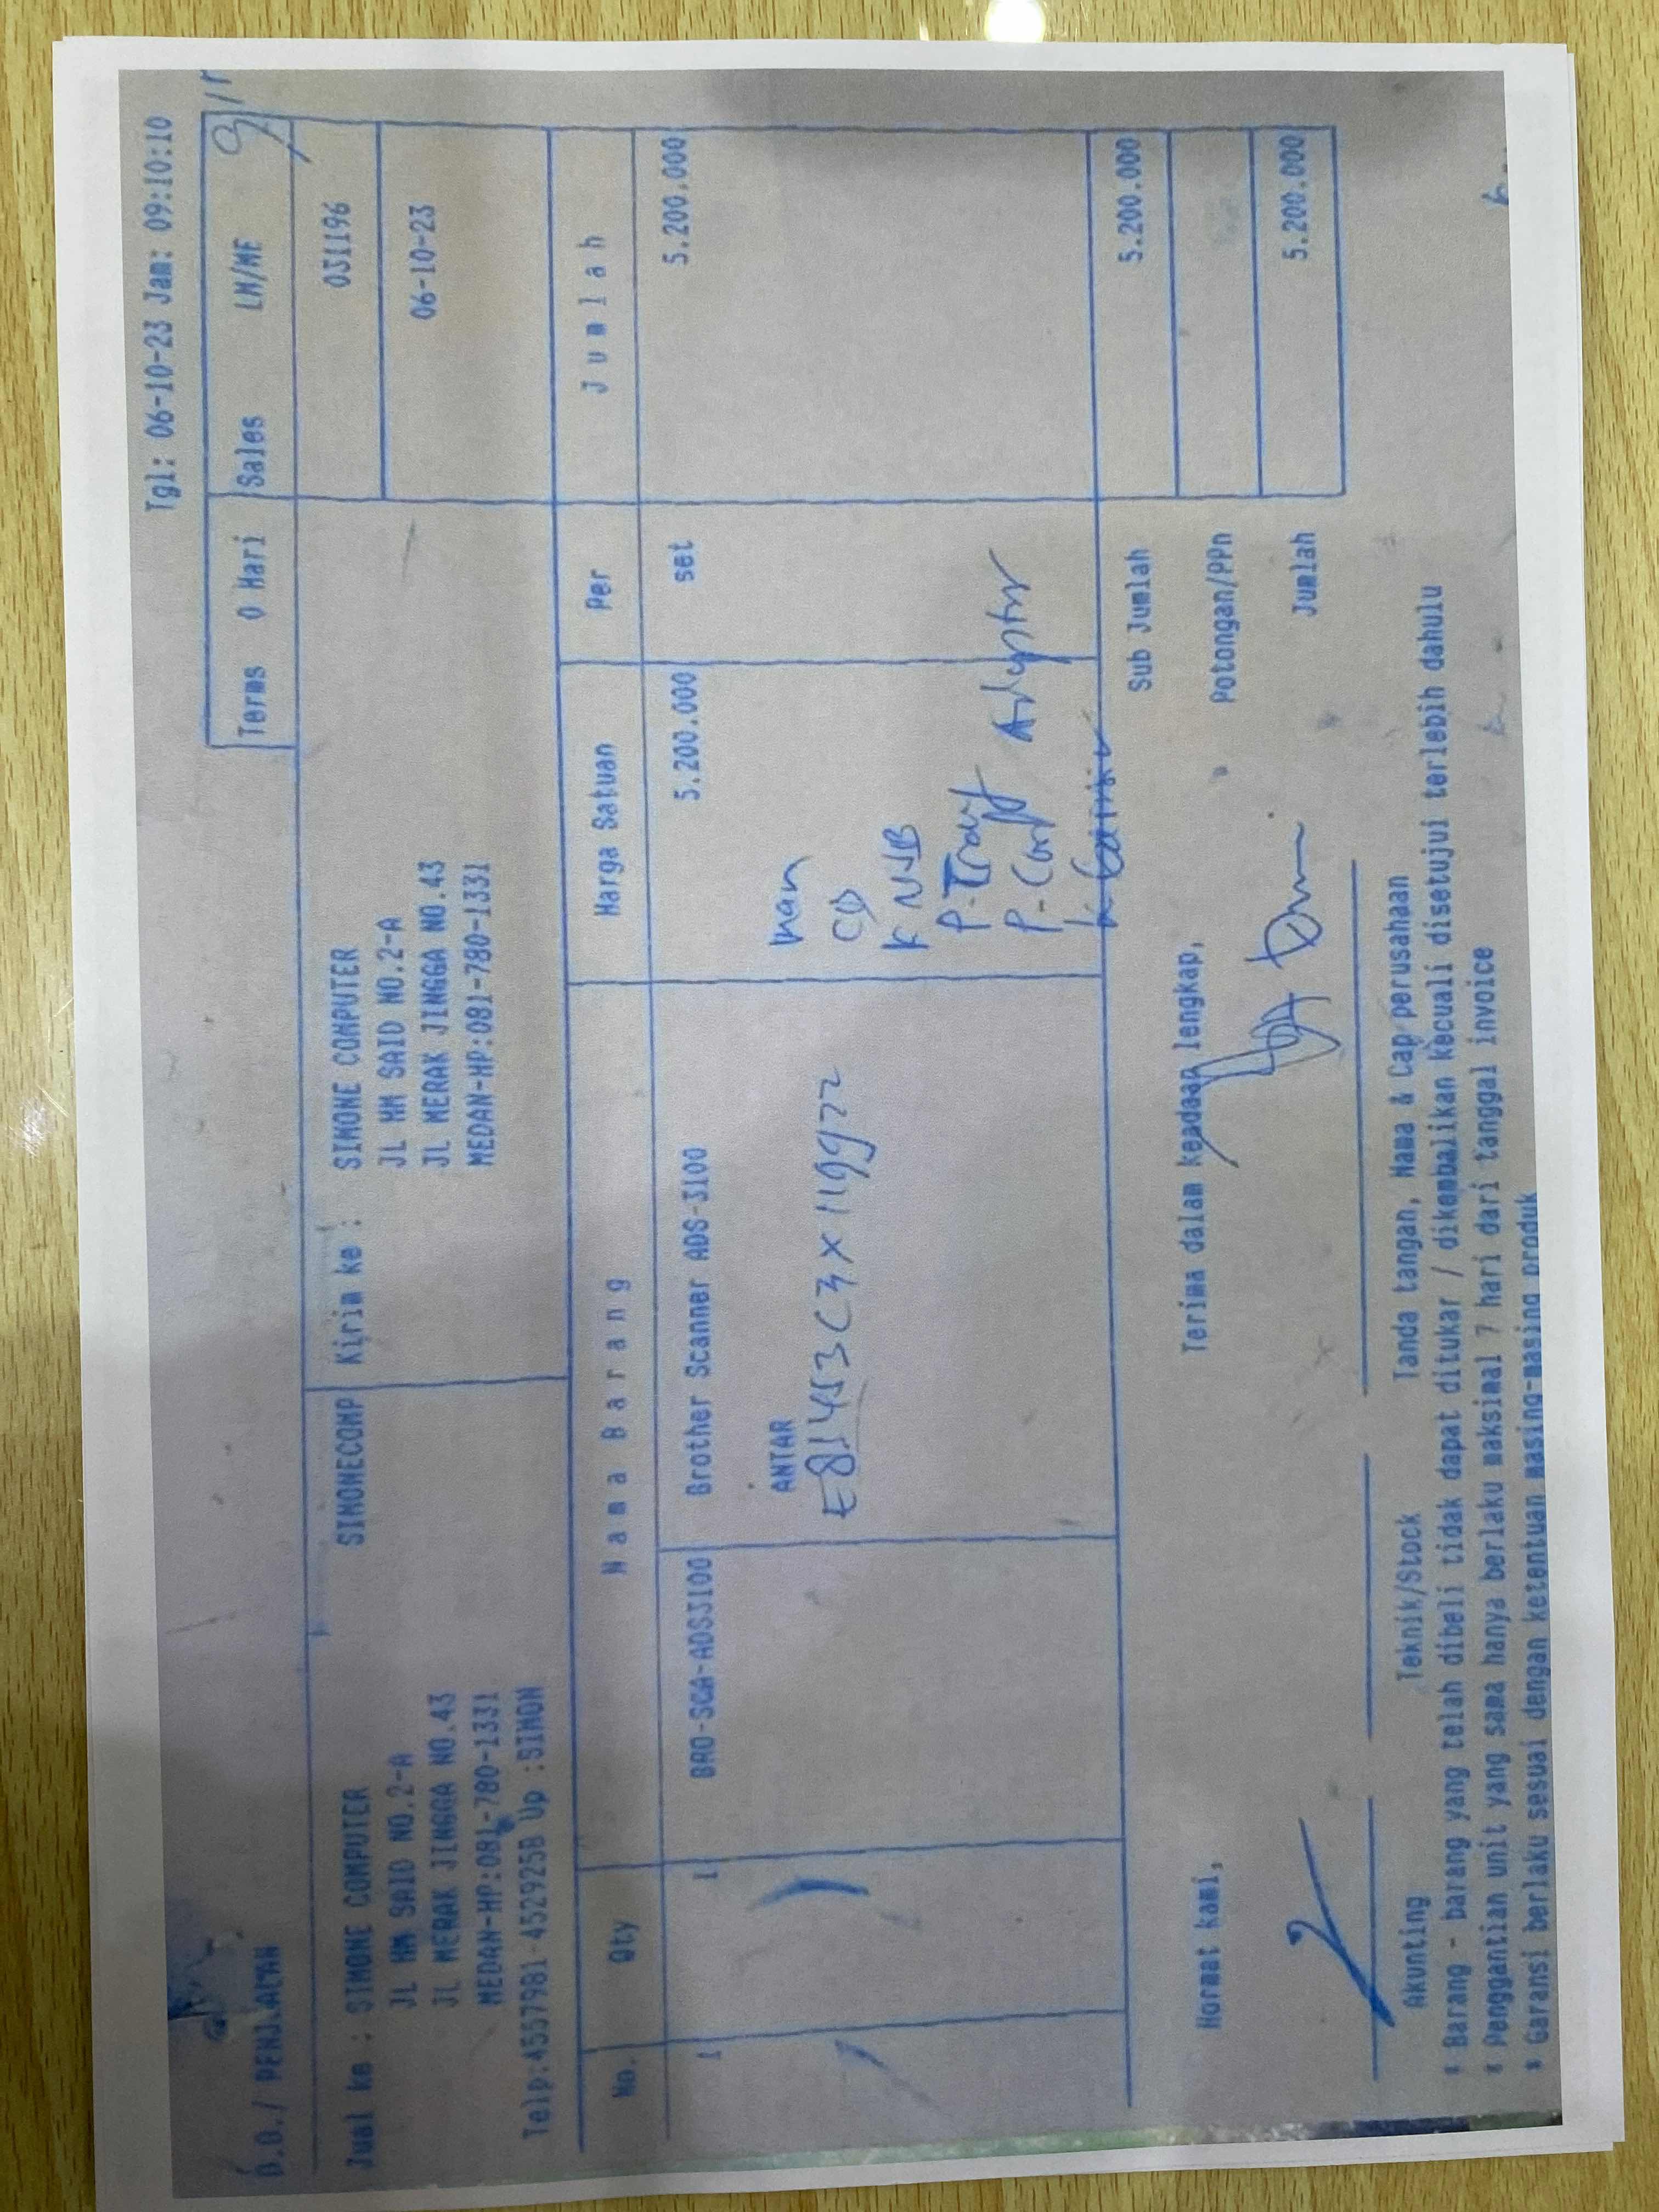 Tgl: 06-10-23 Jam: 09:10:10
D.O./ PENJUALAN
Terms 0 Hari Sales LM/MF
Jual ke : SIMONE COMPUTER SIMONECOMP
JL HM SAID NO.2-A
JL MERAK JINGGA NO.43
MEDAN-HP:081-780-1331
Telp:4557981-4529258 Up :SIMON
Kirim ke : SIMONE COMPUTER
JL HM SAID NO.2-A
JL MERAK JINGGA NO.43
MEDAN-HP:081-780-1331
031196
06-10-23
No. Qty Nama Barang Harga Satuan Per Jumlah
1 1 BRO-SCA-ADS3100 Brother Scanner ADS-3100 5.200.000 set 5.200.000
ANTAR
E81453C3X119972
man
CD
K USB
P-Tray
P-Conf Adaptor
Sub Jumlah 5.200.000
Potongan/PPn
Jumlah 5.200.000
Hormat kami, Terima dalam keadaan lengkap,
Akunting Teknik/Stock Tanda tangan, Nama & Cap perusahaan
* Barang - barang yang telah dibeli tidak dapat ditukar / dikembalikan kecuali disetujui terlebih dahulu
* Penggantian unit yang sama hanya berlaku maksimal 7 hari dari tanggal invoice
* Garansi berlaku sesuai dengan ketentuan masing-masing produk